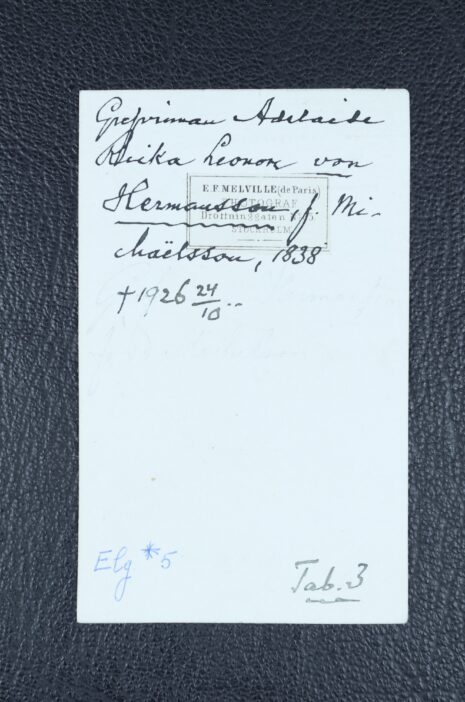 Grefvinnan Adelaide
Ulrika Leonore von
Hermansson, f. Mi-
chaëlsson, 1838
† 1926 24/10..
E. F. MELVILLE (de Paris)
FOTOGRAF
Drottninggatan
STOCKHOLM
Elg * 5
Tab. 3